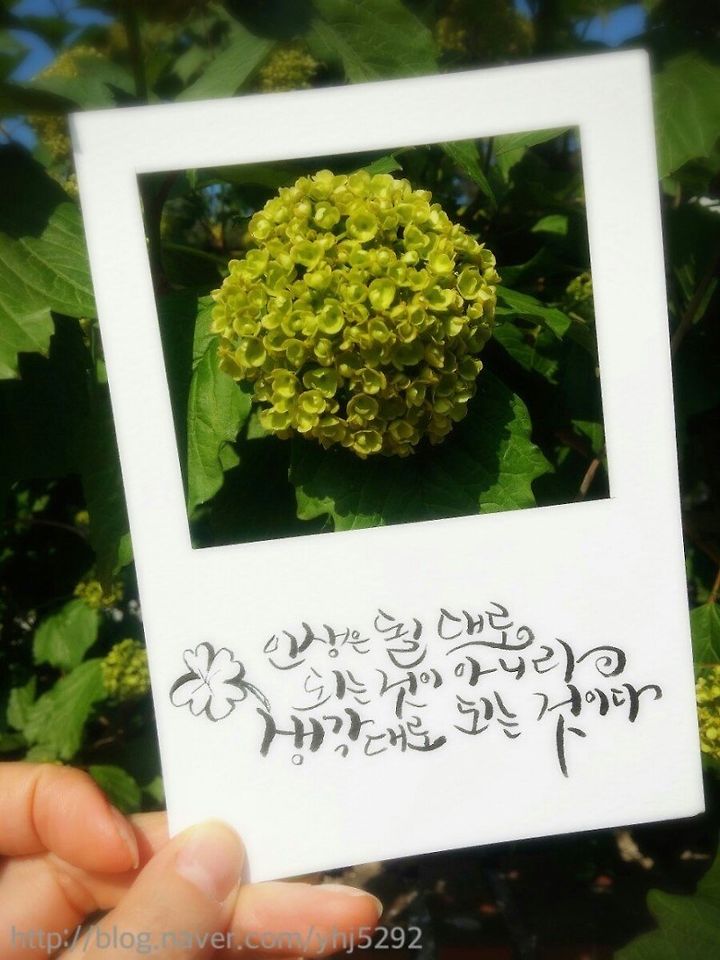 인생은 될 대로
되는 것이 아니라
생각대로 되는 것이다
http://blog.naver.com/yhj5292